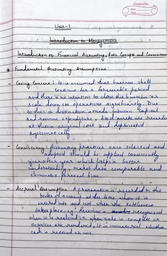 Unit-1
Introduction to Management
Introduction to Financial Accounting
Fundamental Accounting Assumptions
Going Concern: It is assumed that business shall
continue for a foreseeable period
and there is no intention to close the business or
scale down its operations significantly. Due
to this a distinction is made between Capital
and revenue expenditure. Fixed assets are recorded
at their original cost and depreciated
systematically
Consistency: Accounting practices once selected and
adopted should be applied consistently
year after year which helps in better
understanding, makes data comparable and
Accrual Assumption: A transaction is recorded in the
books of accounts at the time when it is
entered into and not when the settlement
takes place. Revenue is recognised
when it is realised i.e. when sale is complete or
services are rendered it is immaterial whether
cash is received or not